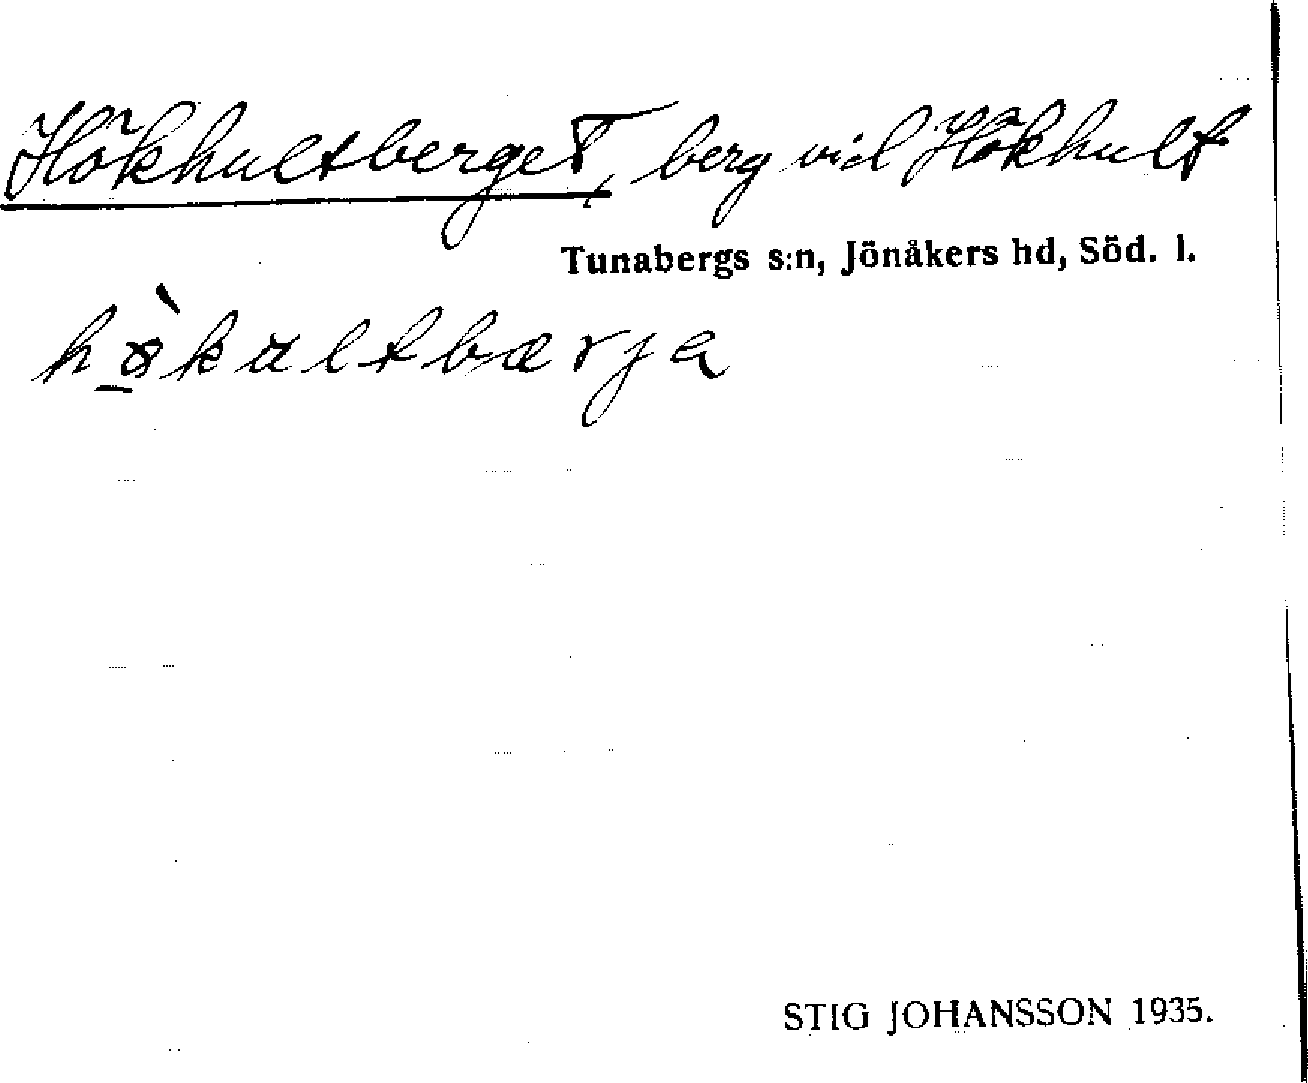 Hökhultsberget, berg vid Hökhult
Tunabergs s:n, Jönåkers hd, Söd. l.
STIG JOHANSSON 1935.